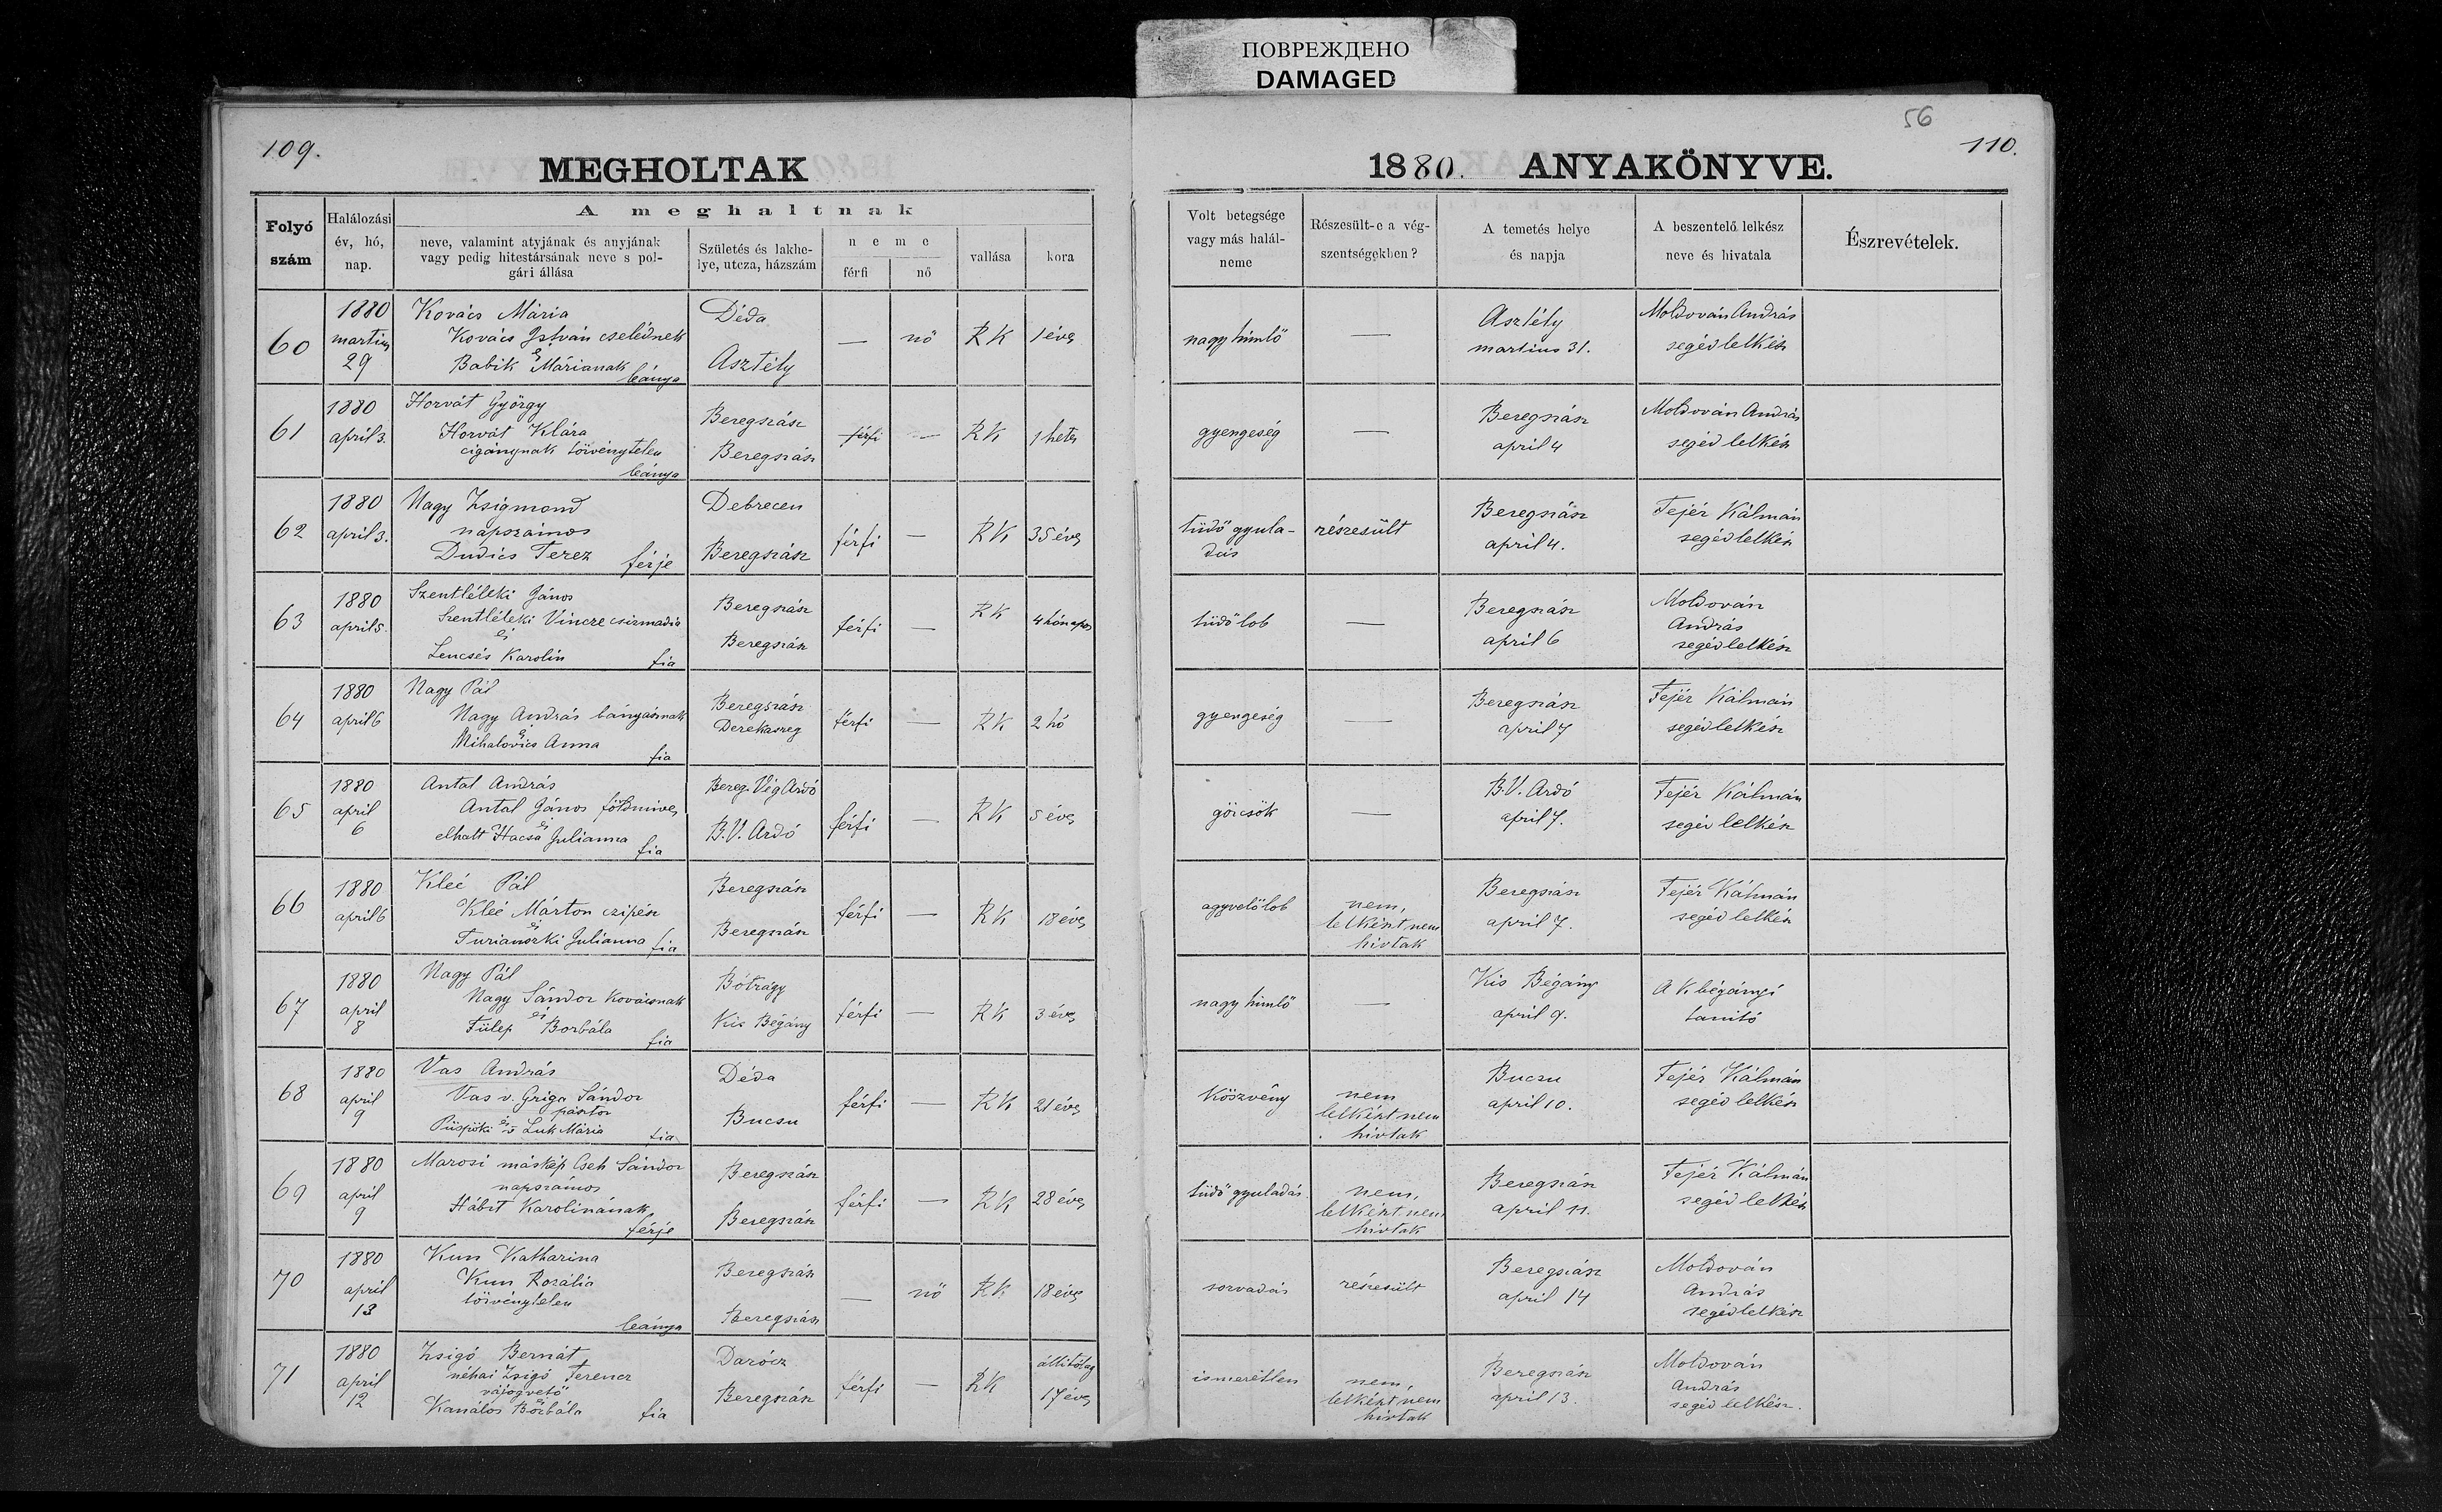 ПОВРЕЖДЕНО
DAMAGED
56
109.
MEGHOLTAK
Folyó szám
Halálozási év, hó, nap.
A meghaltnak
neve, valamint atyjának és anyjának
vagy pedig hitestársának neve s pol-
gári állása
Születés és lakhe-
lye, utcza, házszám
neme
férfi
nő
vallása
kora
60
1880
martius
29
Kovács Mária
Kovács István cselédnek
és
Babik Máriának
leánya
Déda
Asztély
—
nő
RK
1 éves
61
1880
april 3.
Horvát György
Horvát Klára
cigánynak törvénytelen
leánya
Beregszász
Beregszász
férfi
—
RK
1 hetes
62
1880
april 3.
Nagy Zsigmond
napszámos
Dudics Terez
férje
Debrecen
Beregszász
férfi
—
RK
35 éves
63
1880
april 5.
Szentléleki János
Szentléleki Vincze csizmadia
és
Lencsés Karolin
fia
Beregszász
Beregszász
férfi
—
RK
4 hónapos
64
1880
april 6
Nagy Pál
Nagy András bányásznak
és
Mihalovics Anna
fia
Beregszász
Derekaszeg
férfi
—
RK
2 hó
65
1880
april
6
Antal András
Antal János földmives
és
elhalt Hacsa Julianna
fia
Bereg Vég Ardó
B.V. Ardó
férfi
—
RK
5 éves
66
1880
april 6
Kleé Pál
Kleé Márton czipész
és
Turianszki Julianna
fia
Beregszász
Beregszász
férfi
—
RK
18 éves
67
1880
april
8
Nagy Pál
Nagy Sándor kovácsnak
és
Fülep Borbála
fia
Bótrágy
Kis Bégány
férfi
—
RK
3 éves
68
1880
april
9
Vas András
Vas v. Griga Sándor
pásztor
és
Püspöki v Luk Mária
fia
Déda
Bucsu
férfi
—
RK
21 éves
69
1880
april
9
Marosi máskép Cseh Sándor
napszámos
Hábit Karolinának
férje
Beregszász
Beregszász
férfi
—
RK
28 éves
70
1880
april
13
Kun Katharina
Kun Rozália
törvénytelen
leánya
Beregszász
Beregszász
—
nő
RK
18 éves
71
1880
april
12
Zsigó Bernát
néhai Zsigó Ferencz
vájogvető
és
Kanálos Borbála
fia
Darócz
Beregszász
férfi
—
RK
állitólag
17 éves
1880.
ANYAKÖNYVE.
110.
Volt betegsége
vagy más halál-
neme
Részesült-e a vég-
szentségekben?
A temetés helye
és napja
A beszentelő lelkész
neve és hivatala
Észrevételek.
nagy himlő
—
Asztély
martius 31.
Moldován András
segéd lelkész
gyengeség
—
Beregszász
april 4
Moldován András
segéd lelkész
tüdő gyula-
dás
részesült
Beregszász
april 4.
Fejér Kálmán
segédlelkész
tüdő lob
—
Beregszász
april 6
Moldován
András
segédlelkész
gyengeség
—
Beregszász
april 7
Fejér Kálmán
segédlelkész
görcsök
—
B.V. Ardó
april 7.
Fejér Kálmán
segéd lelkész
agyvelőlob
nem,
lelkészt nem
hivtak
Beregszász
april 7.
Fejér Kálmán
segéd lelkész
nagy himlő
—
Kis Bégány
april 9.
A K. bégányi
tanitó
Köszvény
nem
lelkészt nem
hivtak
Bucsu
april 10.
Fejér Kálmán
segéd lelkész
tüdő gyuladás
nem,
lelkészt nem
hivtak
Beregszász
april 11.
Fejér Kálmán
segéd lelkész
sorvadás
részesült
Beregszász
april 14
Moldován
András
segédlelkész
ismeretlen
nem,
lelkészt nem
hivtak
Beregszász
april 13.
Moldován
András
segéd lelkész.